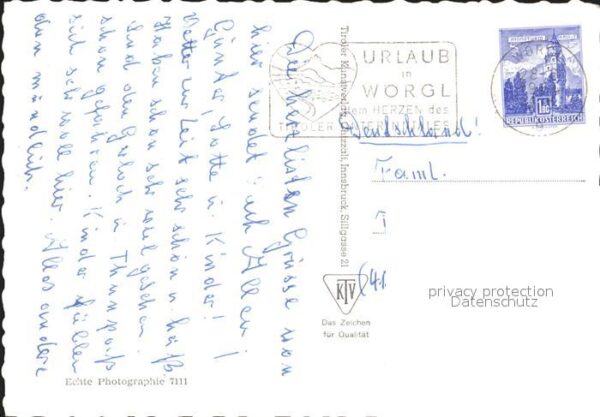 Die herzlichsten Grüsse von
hier sendet Euch Allen!
Günter, Lotte u. Kinder!
Wetter zur Zeit sehr schön u. heiß.
Haben schon sehr viel gesehen.
Sind den Gerlos u. Thurnpaß
schon gefahren. Kinder fühlen
sich sehr wohl hier. Alles andere
dann mündlich.
Echte Photographie 7111
Tiroler Kunstverlag Chizzali, Innsbruck, Sillgasse 21
KTV
Das Zeichen
für Qualität
URLAUB
in
WÖRGL
dem HERZEN des
TIROLER UNTERLANDES
1.80
REPUBLIK ÖSTERREICH
Deutschland!
Faml.
privacy protection
Datenschutz